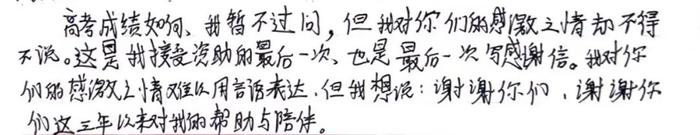 高考成绩如何、我暂不过问，但我对你们的感激之情却不得
不说。这是我接受资助的最后一次、也是最后一次写感谢信。我对你
们的感激之情难以用言语表达、但我想说：谢谢你们、谢谢你
们这三年以来对我的帮助与陪伴。